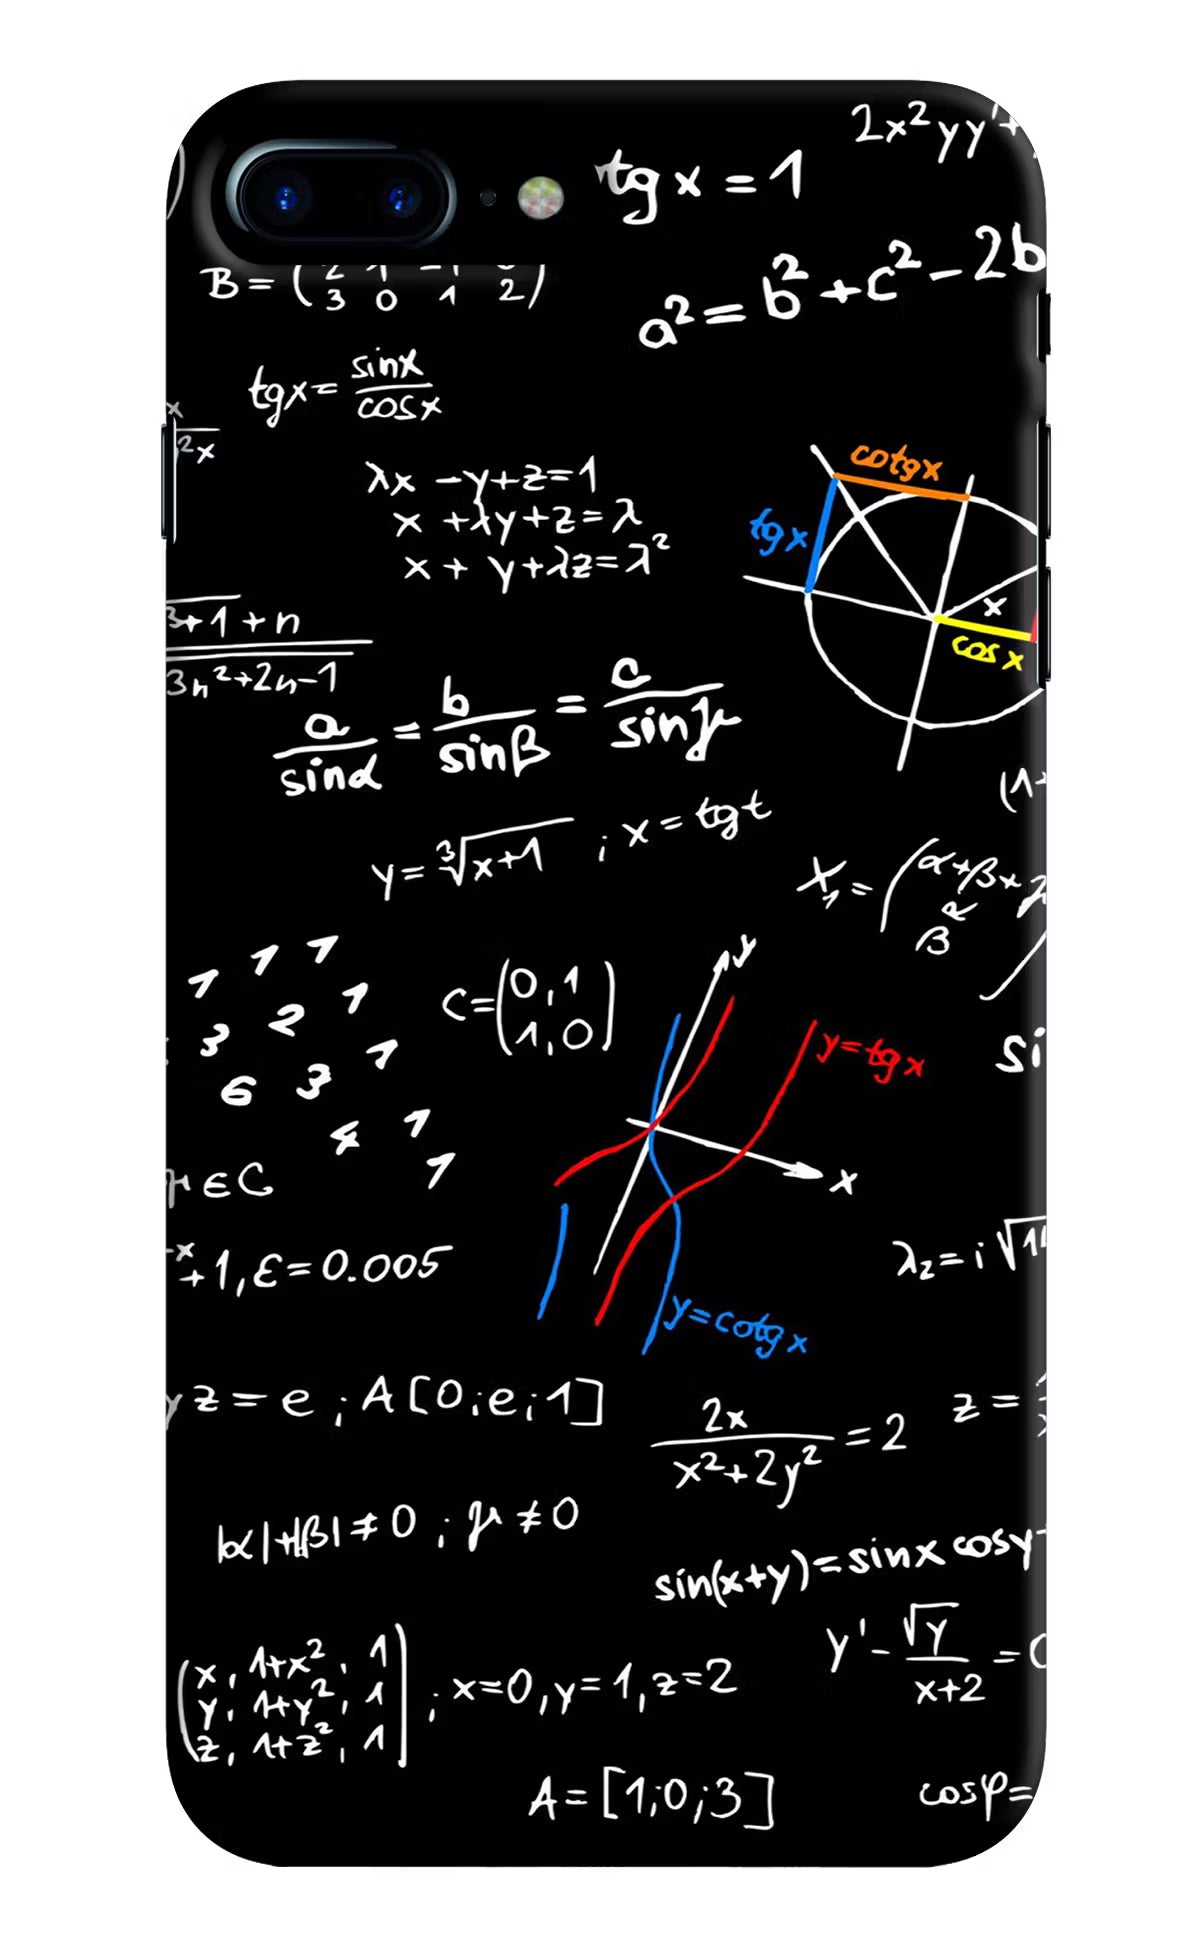 2x²yy'+
tg x = 1
B = (2 1 -1 0
3 0 1 2)
a² = b² + c² - 2b
tgx = sinx / cosx
x
²x
λx - y + z = 1
x + λy + z = λ
x + y + λz = λ²
cotgx
tgx
x
cos x
3+1 + n
3n²+2n-1
a/sinα = b/sinβ = c/sinγ
y = ∛(x+1) ; x = tgt
(1+
X₁ = (α+β+
β
C = (0,1
1,0)
1 1 1
3 2 1
6 3 1
4 1
1
y
y=tgx
x
y=cotgx
si
∈ C
-x
+1, ε = 0.005
λ₂ = i √1
yz = e ; A[0;e;1]
2x / x²+2y² = 2
z =
|α|+|β| ≠ 0 ; μ ≠ 0
sin(x+y) = sinx cosy+
y' - √y / x+2 = 0
(x, 1+x², 1
y, 1+y², 1
z, 1+z², 1) ; x=0, y=1, z=2
A = [1;0;3]
cosφ=